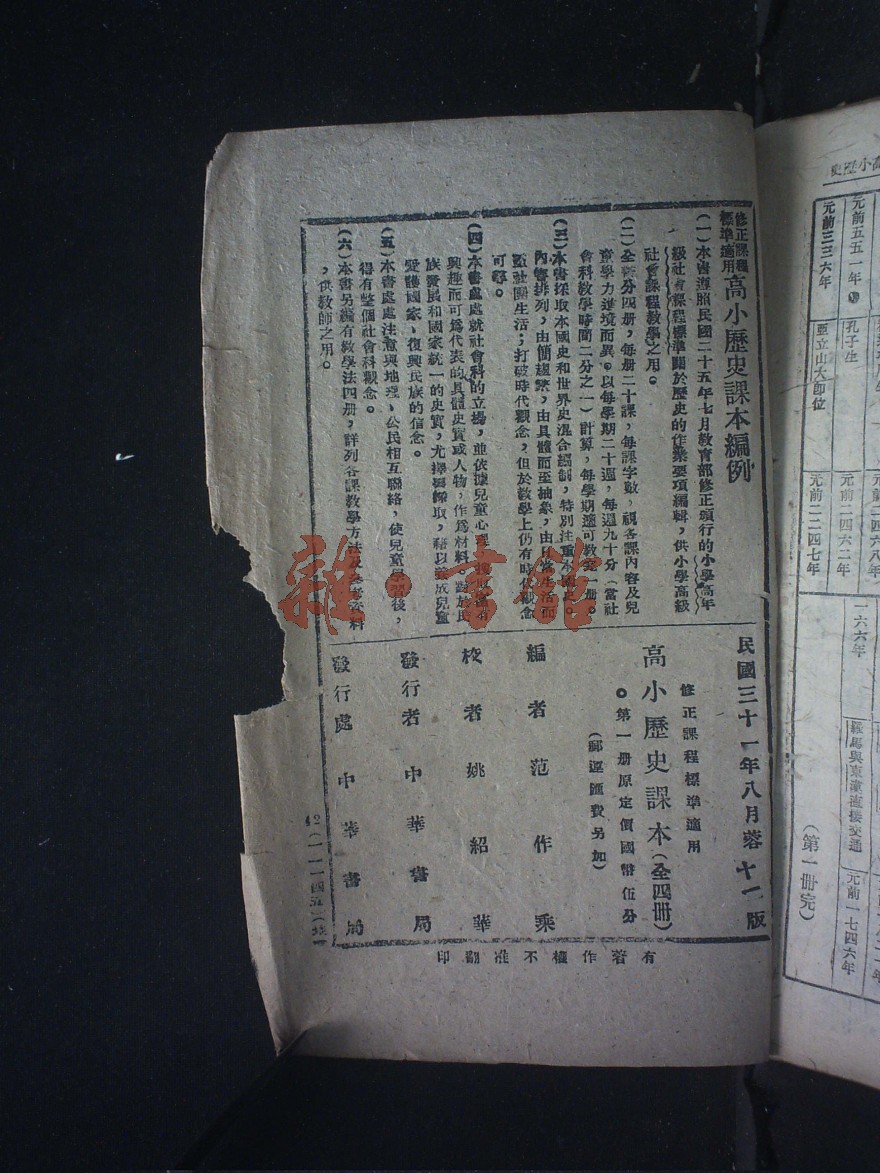 修正課程
標準適用
高小歷史課本編例
(一)本書遵照民國二十五年七月教育部修正頒行的小學高年
級社會課程標準關於歷史的作業要項編輯,供小學高級
社會課程教學之用。
(二)全書分四册,每册二十課,每課字數,視各課內容及兒
童學力進境而異。以每學期二十週,每週九十分(當社
會科教學時間二分之一)計算,每學期適可教完一册。
(三)本書採取本國史和世界史混合編制,特別注重本國史。
內容排列,由簡趨繁,由具體而至抽象,由日常生活而
至社會生活;打破時代觀念,但於教學上仍有時代觀念
可尋。
(四)本書處處就社會科的立場,並依據兒童心理,擇取富有
興趣而可爲代表的具體史實或人物,作爲材料。對於民
族發展和國家統一的史實,尤擇要採取,藉以養成兒童
愛護國家、復興民族的信念。
(五)本書處處注意與地理、公民相互聯絡,使兒童學習後,
得有整個社會科觀念。
(六)本書另編有教學法四册,詳列各課教學方法及參考資料
,供教師之用。
民國三十一年八月蓉十一版
修正課程標準適用
高小歷史課本(全四冊)
第一册原定價國幣伍分
(郵運匯費另加)
編者 范作乘
校者 姚紹華
發行者 中華書局
發行處 中華書局
有著作權不准翻印
雜·書館
高小歷史
元前五五一年
孔子生
元前二四六二年
元前三三六年
亞立山大卽位
元前二二四七年
一六六年
羅馬與東漢直接交通
元前一七四六年
(第一冊完)